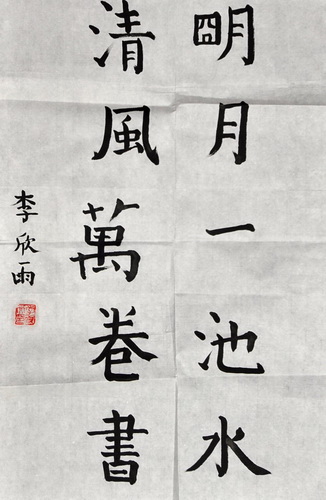 明月一池水
清風萬卷書
李欣雨